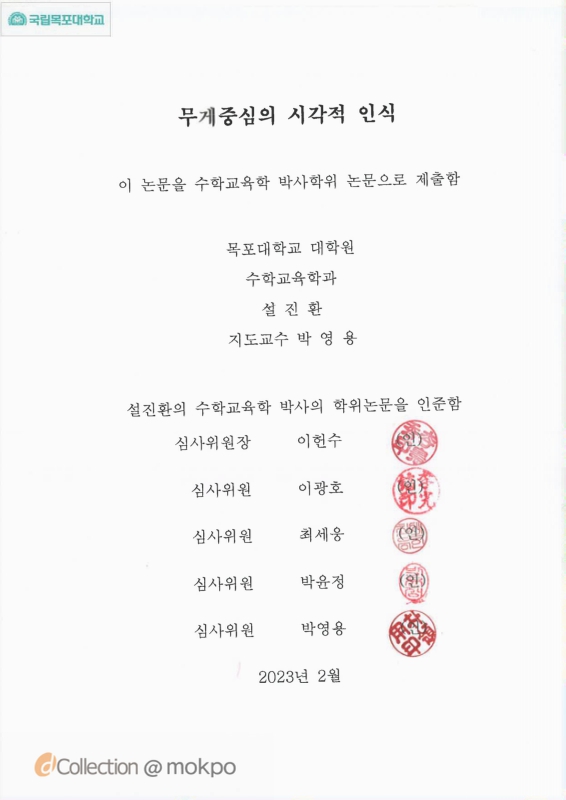 국립목포대학교
무게중심의 시각적 인식
이 논문을 수학교육학 박사학위 논문으로 제출함
목포대학교 대학원
수학교육학과
설 진 환
지도교수 박 영 용
설진환의 수학교육학 박사의 학위논문을 인준함
심사위원장 이헌수 (인)
심사위원 이광호 (인)
심사위원 최세웅 (인)
심사위원 박윤정 (인)
심사위원 박영용 (인)
2023년 2월
dCollection @ mokpo